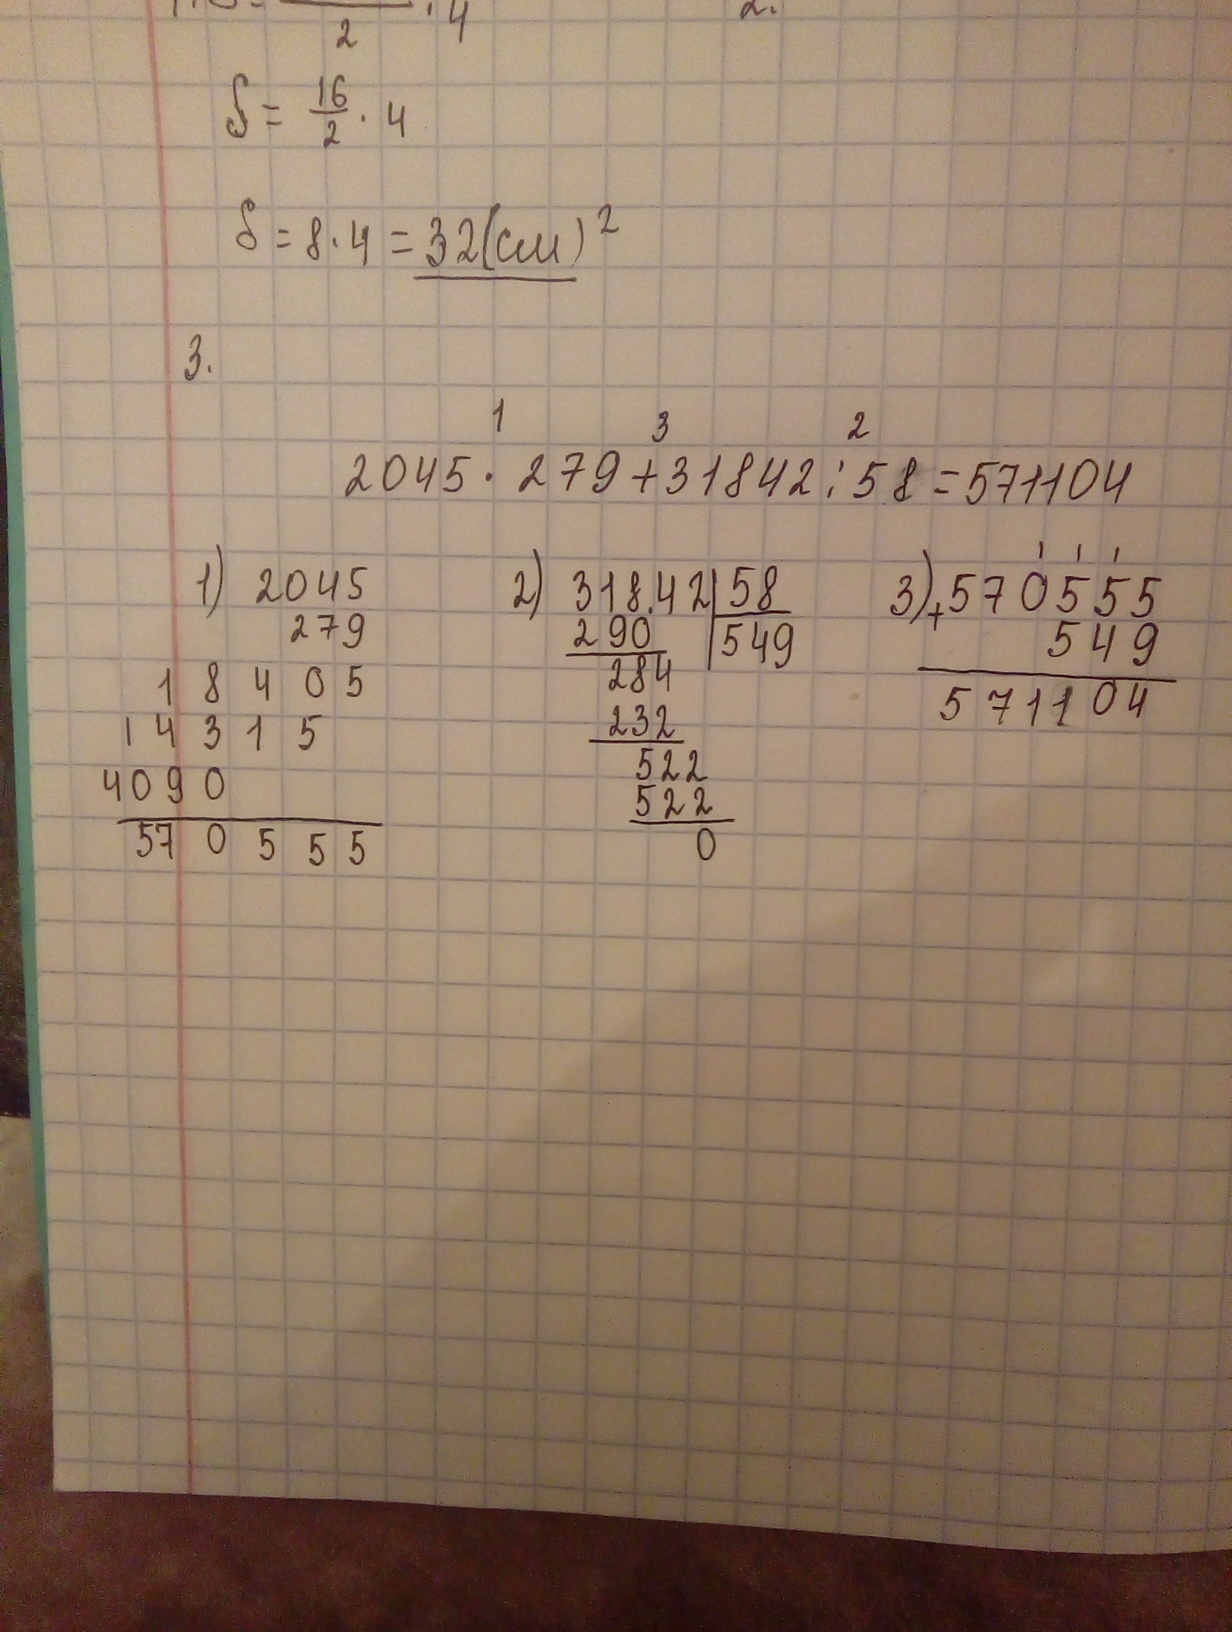 2 · 4
2.
S = 16/2 · 4
S = 8 · 4 = 32 (см)²
3.
1 3 2
2045 · 279 + 31842 : 58 = 571104
1) 2045
279
18405
14315
4090
570555
2) 318.42 58
290 549
284
232
522
522
0
3) + 570555
549
571104